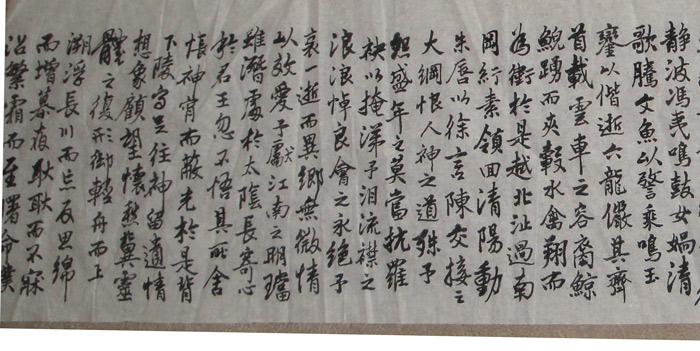 静波馮夷鳴鼓女媧清
歌騰文魚以警乘鳴玉
鑾以偕逝六龍儼其齊
首載雲車之容裔鯨
鯢踴而夾轂水禽翔而
為衛於是越北沚過南
岡紆素領回清陽動
朱唇以徐言陳交接之
大綱恨人神之道殊予
怨盛年之莫當抗羅
袂以掩涕予泪流襟之
浪浪悼良會之永绝予
哀一逝而異鄉無微情
以效愛予獻江南之明璫
雖潛處於太陰長寄心
於君王忽不悟其所舍
悵神宵而蔽光於是背
下陵高足往神留遺情
想象顧望懷愁冀靈
體之復形御輕舟而上
溯浮長川而忘反思綿
而增慕夜耿耿而不寐
沾繁霜而至曙命僕